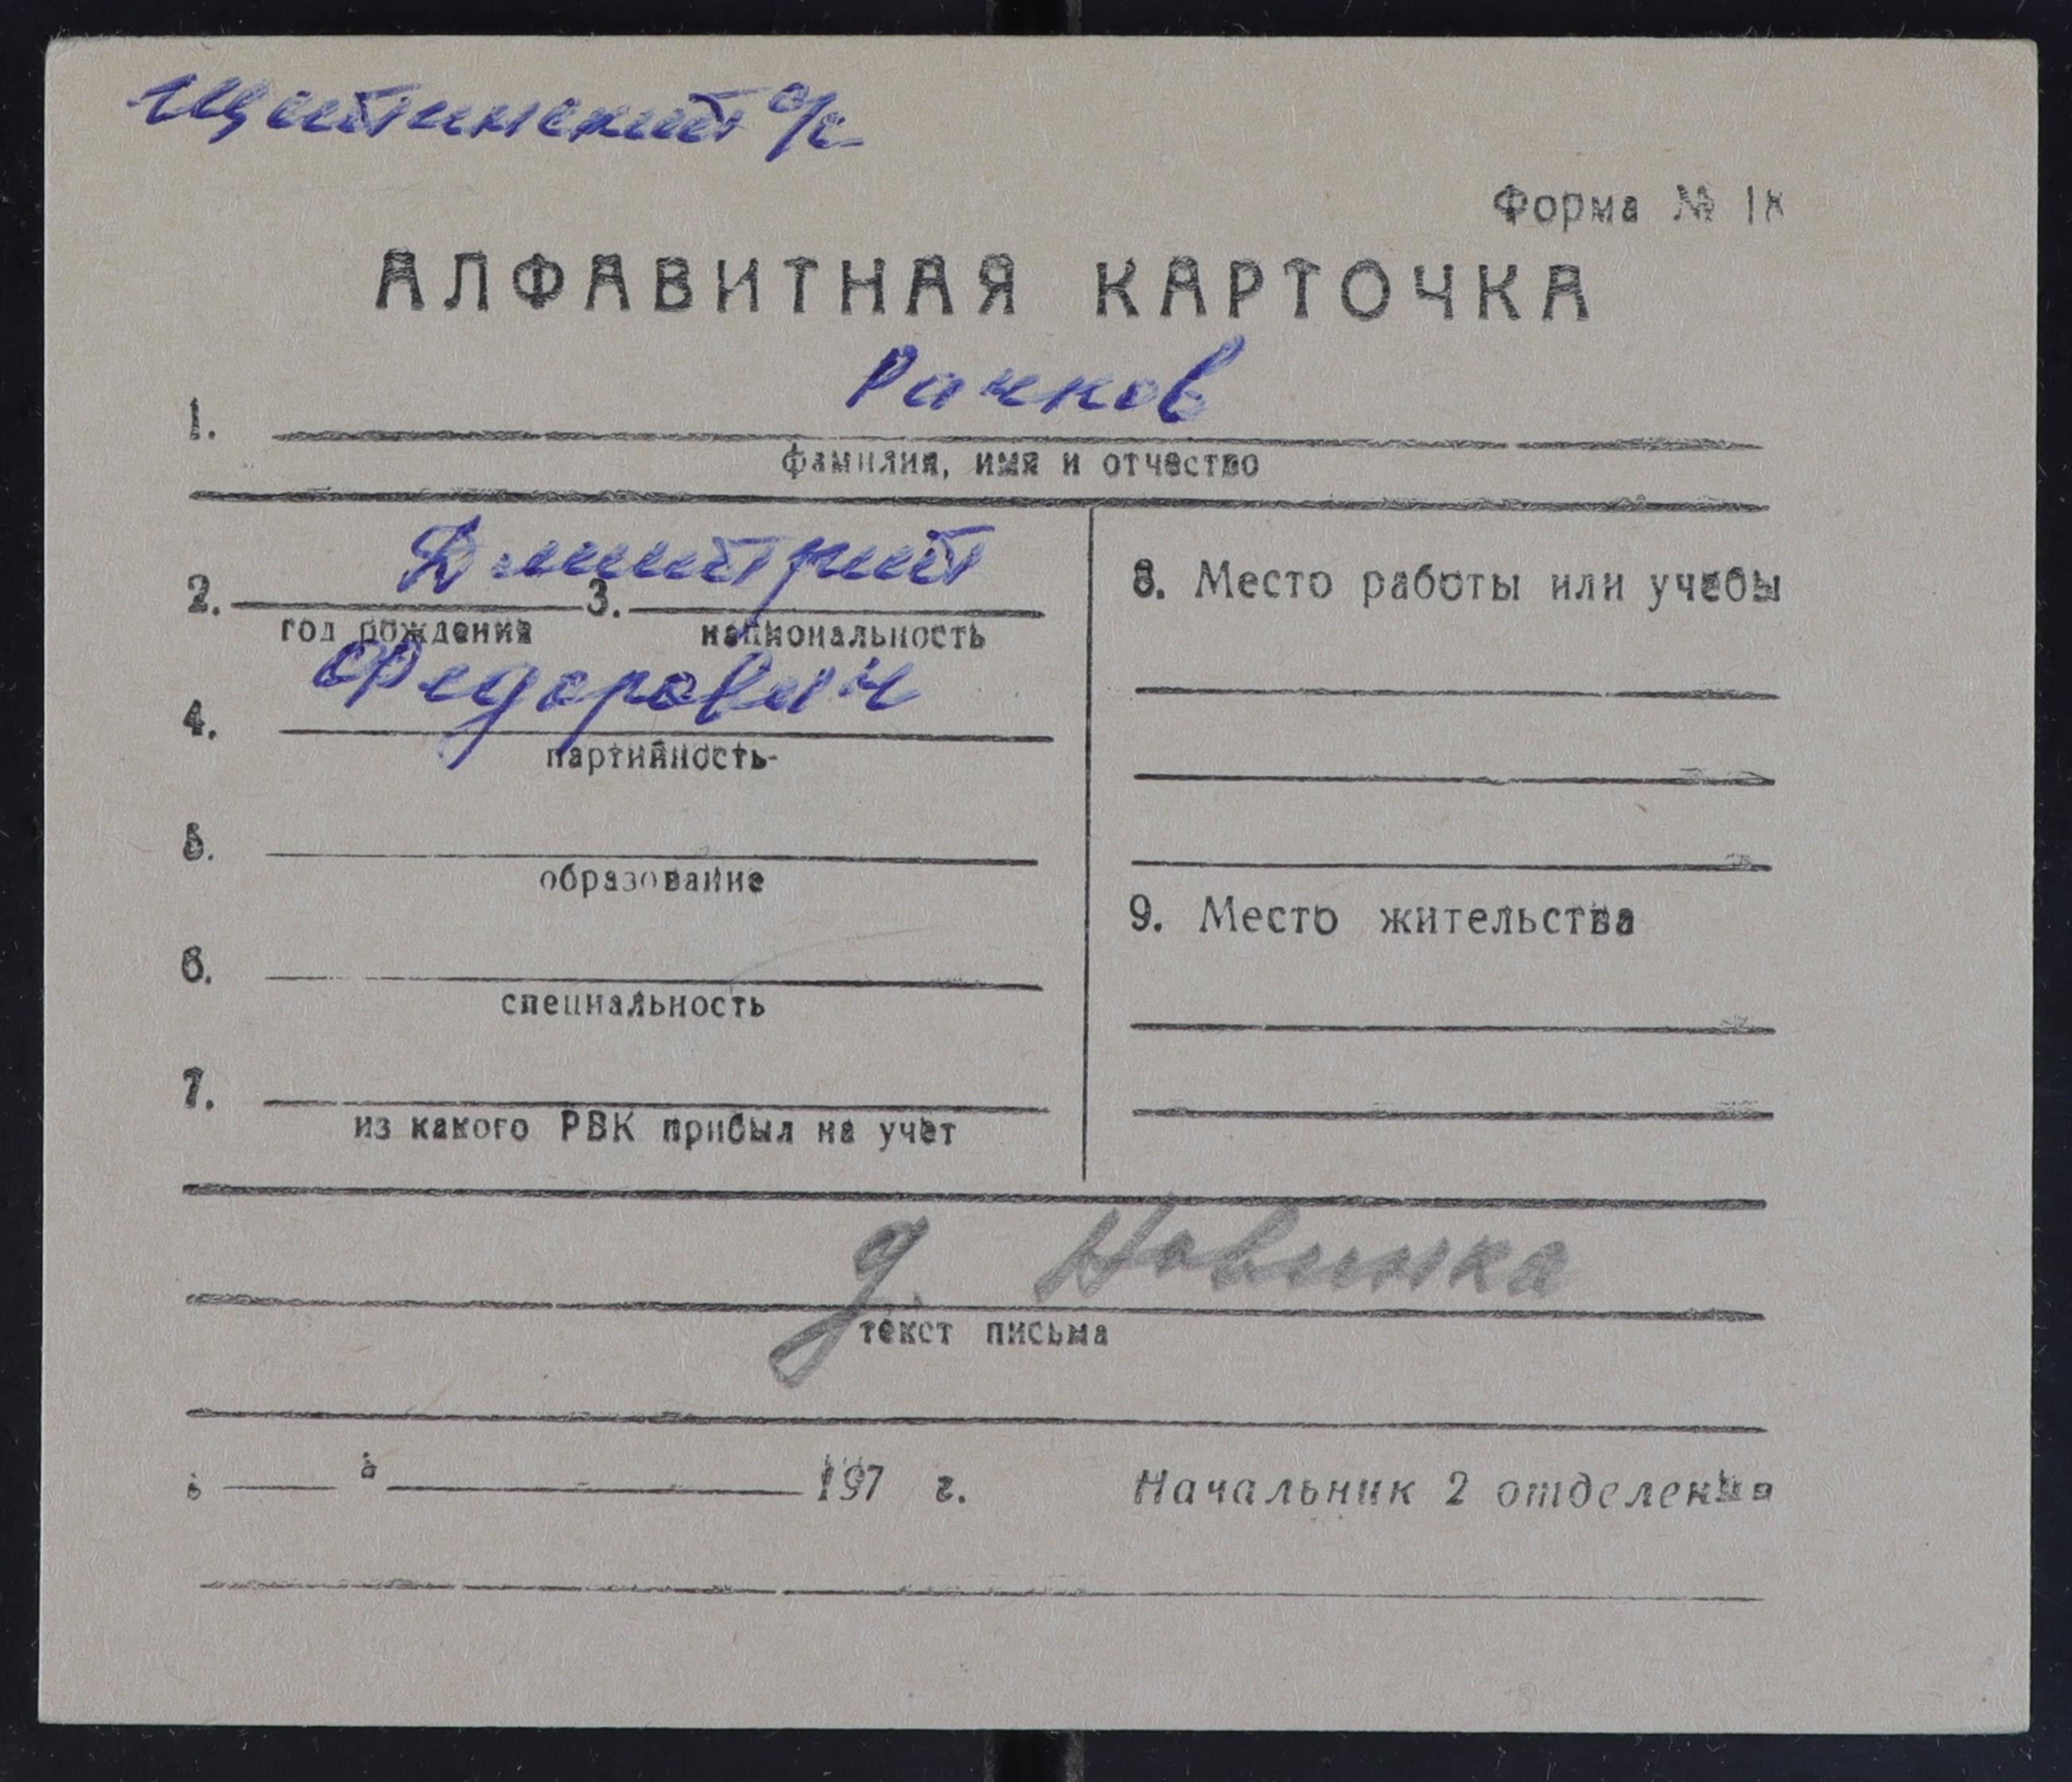 Щетинский с/с
Форма № 18
АЛФАВИТНАЯ КАРТОЧКА
1. Рачков
фамилия, имя и отчество
Дмитрий
2. 3.
год рождения национальность
Федорович
4.
партийность
5.
образование
6.
специальность
7.
из какого РВК прибыл на учет
8. Место работы или учебы
9. Место жительства
д. Новинка
текст письма
197 г. Начальник 2 отделения